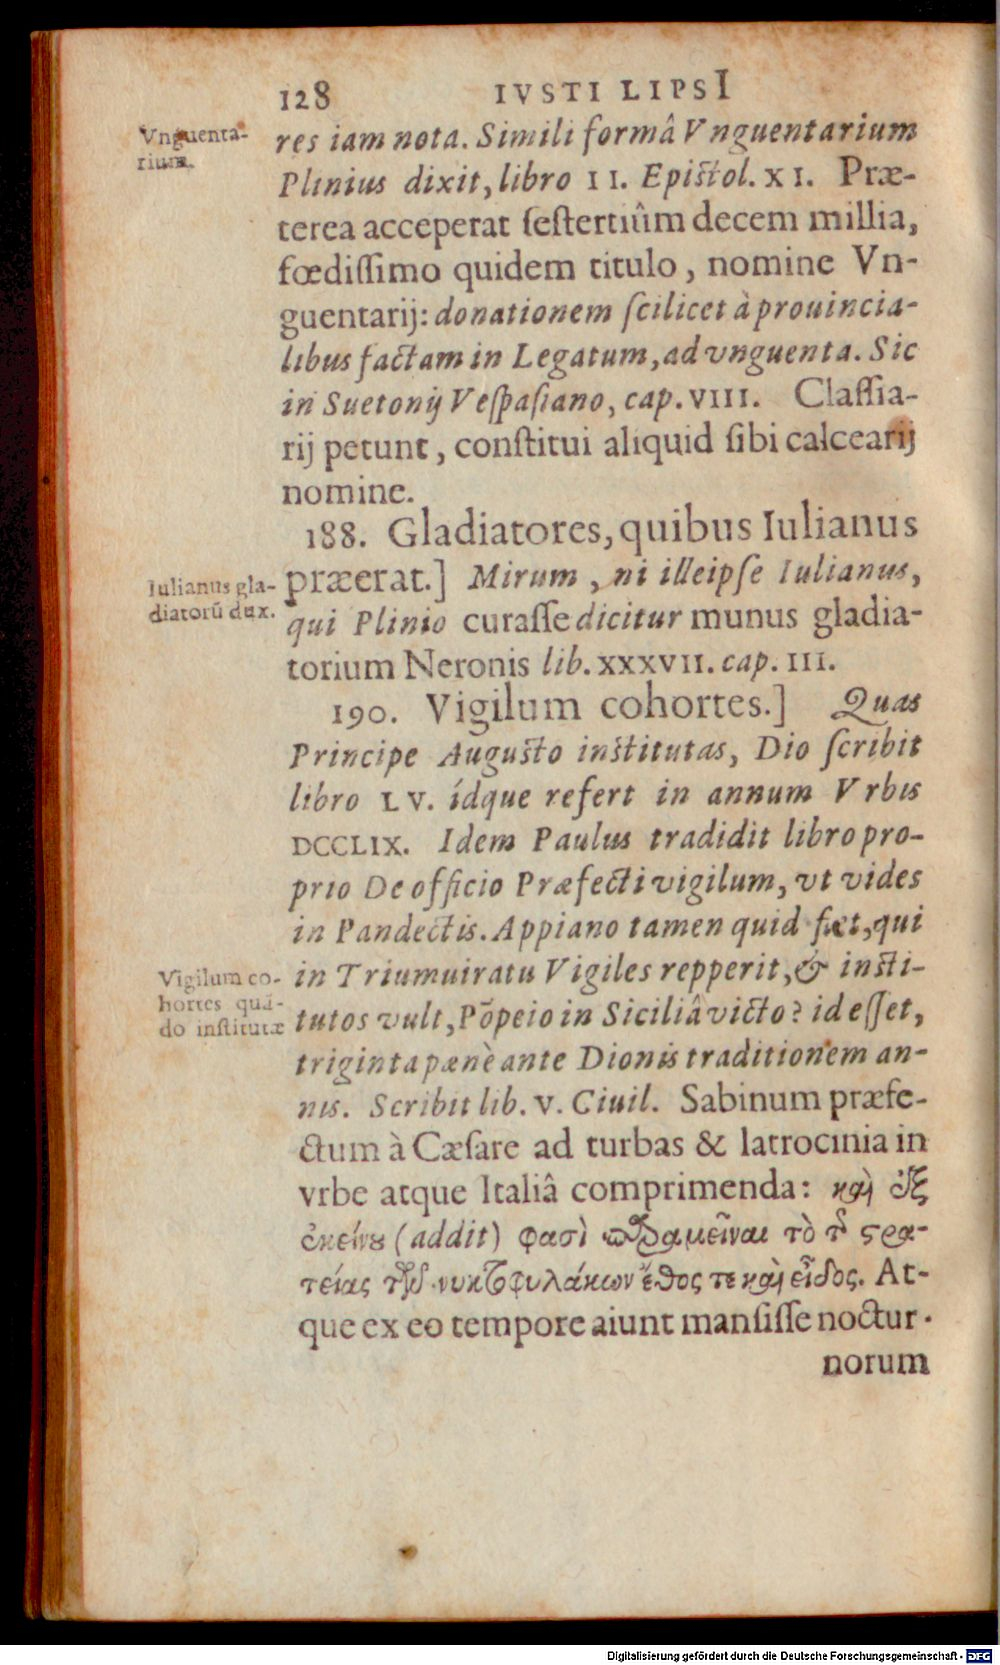 128 IVSTI LIPSI
Vnguenta-
rium.
res iam nota. Simili formâ Vnguentarium
Plinius dixit, libro II. Epistol. XI. Præ-
terea acceperat ſeſtertiûm decem millia,
fœdiſſimo quidem titulo, nomine Vn-
guentarij: donationem ſcilicet à prouincia-
libus factam in Legatum, ad vnguenta. Sic
in Suetonij Veſpaſiano, cap. VIII. Claſſia-
rij petunt, conſtitui aliquid ſibi calcearij
nomine.
188. Gladiatores, quibus Iulianus
Iulianus gla-
diatorũ dux.
præerat.] Mirum, ni ille ipſe Iulianus,
qui Plinio curaſſe dicitur munus gladia-
torium Neronis lib. XXXVII. cap. III.
190. Vigilum cohortes.] Quas
Principe Auguſto inſtitutas, Dio ſcribit
libro LV. ídque refert in annum Vrbis
DCCLIX. Idem Paulus tradidit libro pro-
prio De officio Præfecti vigilum, vt vides
in Pandectis. Appiano tamen quid fiet, qui
Vigilum co-
hortes quã-
do inſtitutæ
in Triumuiratu Vigiles repperit, & inſti-
tutos vult, Põpeio in Siciliâ victo? id eſſet,
triginta pænè ante Dionis traditionem an-
nis. Scribit lib. V. Ciuil. Sabinum præfe-
ctum à Cæſare ad turbas & latrocinia in
vrbe atque Italiâ comprimenda: καὶ ἐξ
ἐκείνου (addit) φασὶ παραμεῖναι τὸ τῆς στρα-
τείας τῶν νυκτοφυλάκων ἔθος τε καὶ εἶδος. At-
que ex eo tempore aiunt manſiſſe noctur-
norum
Digitalisierung gefördert durch die Deutsche Forschungsgemeinschaft - DFG